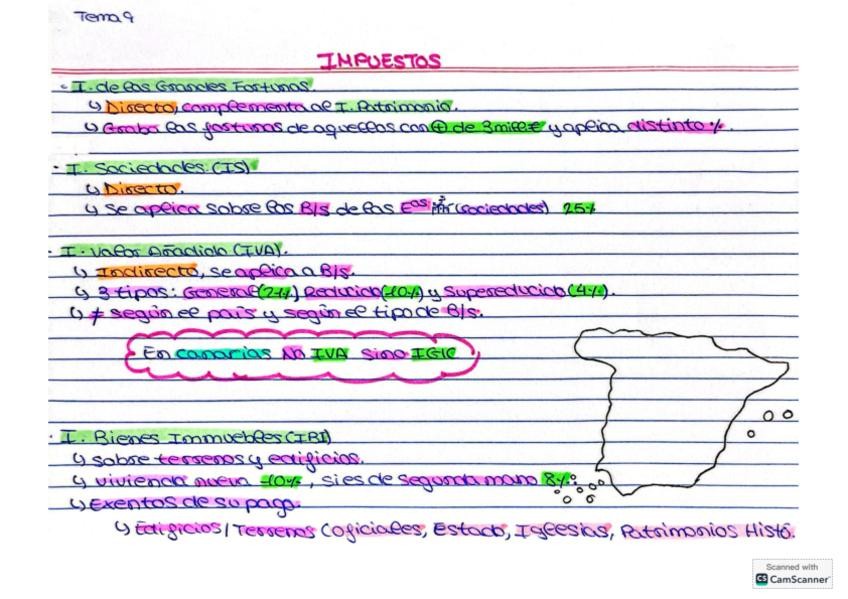 Tema 9
IMPUESTOS
· I. de las Grandes Fortunas.
↳ Directo, complementa al I. Patrimonio.
↳ Graba las fortunas de aquellos con ⊕ de 3mill€ y aplica distinto %.
· I. Sociedades (IS)
↳ Directo.
↳ Se aplica sobre los B/s de las Eas (sociedades) 25%
· I. Valor Añadido (IVA).
↳ Indirecto, se aplica a B/s.
↳ 3 tipos: General (21%) Reducido (10%) y Superreducido (4%).
↳ ≠ según el país y según el tipo de B/s.
En canarias No IVA sino IGIC
· I. Bienes Immuebles (IBI)
↳ sobre terrenos y edificios.
↳ vivienda nueva 10%, si es de segunda mano 8%
↳ Exentos de su pago.
↳ Edificios/Terrenos (oficiales, Estado, Iglesias, Patrimonios Histó.
Scanned with
CS CamScanner